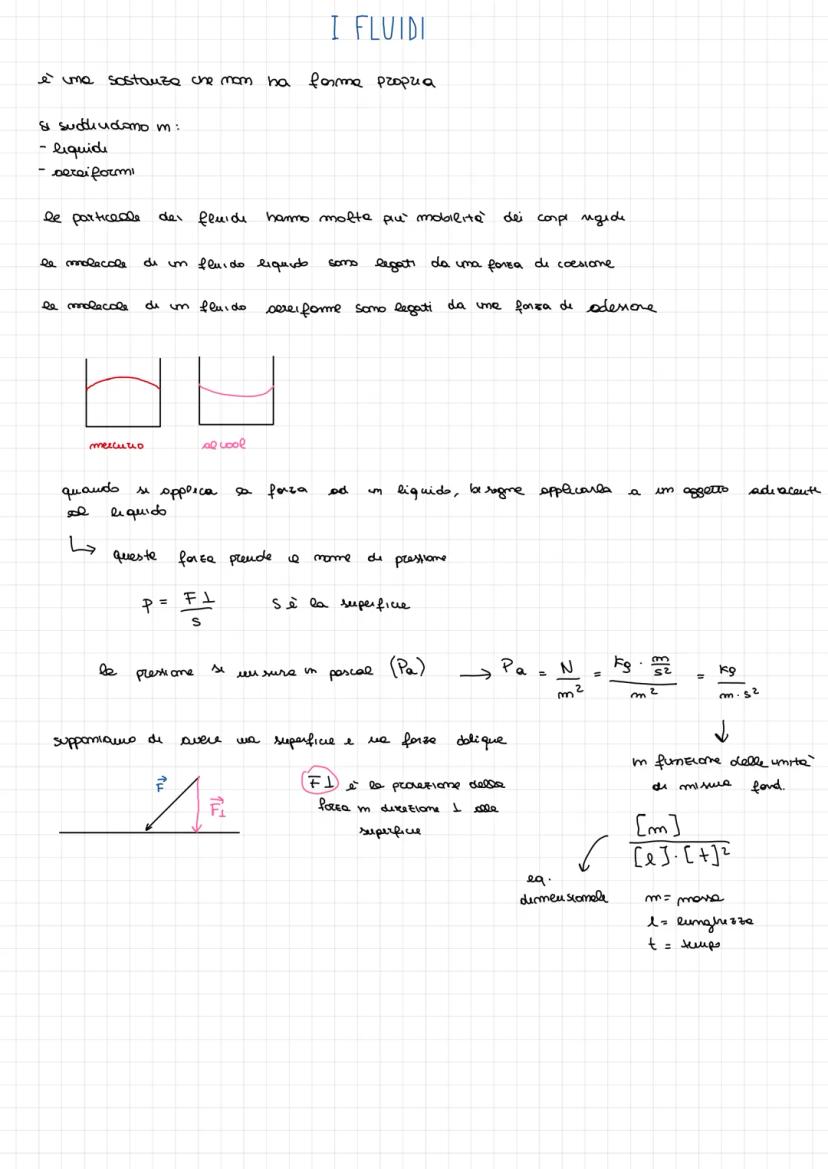 I FLUIDI
è una sostanza che non ha forma propria
si suddividono in:
- liquidi
- aereiformi
le particelle dei fluidi hanno molta più mobilità dei corpi rigidi
le molecole di un fluido liquido sono legati da una forza di coesione
le molecole di un fluido aereiforme sono legati da una forza di adesione
mercurio
alcool
quando si applica la forza ad un liquido, bisogna applicarla a un oggetto adiacente
al liquido
↳ questa forza prende il nome di pressione
P = F⊥ / S   S è la superficie
la pressione si misura in pascal (Pa) → Pa = N / m² = kg · m/s² / m² = kg / m · s²
↓
in funzione delle unità
di misura fond.
supponiamo di avere una superficie e una forza obliqua
F⃗
F⃗⊥
F⊥ è la proiezione della
forza in direzione ⊥ alla
superficie
[m] / [l] · [t]²
eq.
dimensionale
m = massa
l = lunghezza
t = tempo